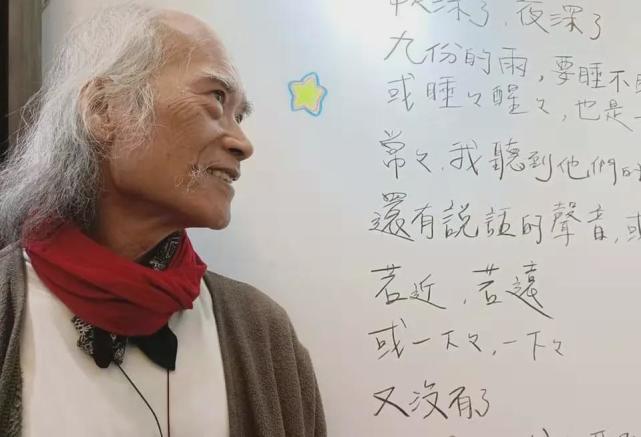 夜深了，夜深了
九份的雨，要睡不
或睡々醒々，也是
常々，我聽到他們的
還有說話的聲音，或
若近，若遠
或一下々，一下々
又沒有了